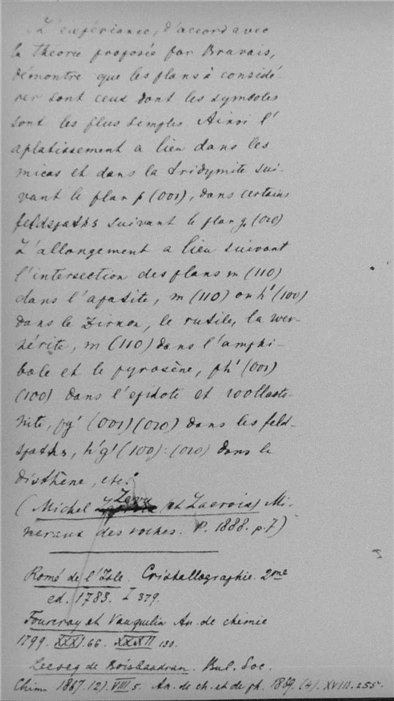 L'expérience, d'accord avec
la théorie proposée par Bravais,
démontre que les plans à considé-
rer sont ceux dont les symboles
sont les plus simples Ainsi l'
aplatissement a lieu dans les
micas et dans la tridymite sui-
vant le plan p (001), dans certains
feldspaths suivant le plan g, (010)
L'allongement a lieu suivant
l'intersection des plans m (110)
dans l'apatite, m (110) ou h' (100)
dans le Zircon, le rutile, la wer-
nérite, m (110) dans l'amphi-
bole et le pyroxène, ph' (001)
(100) dans l'épidote et wollasto-
nite, pg' (001) (010) dans les feld-
spaths, h'g' (100) (010) dans le
disthène, etc."
(Michel Lévy et Lacroix) Mi-
néraux des roches. P. 1888. p. 7)
Romé de l'Isle. Cristallographie. 2me
ed. 1783. I 379.
Fourcroy et Vauquelin An. de chimie
1799. XXXI. 66. XXXII 130.
Lecoq de Boisbaudran. Bul. Soc.
Chim 1867. (2). VIII 5. An. de ch. et de ph. 1869. (4). XVIII. 255.